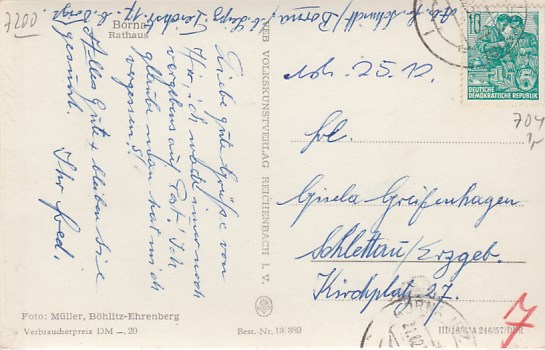 7200
Borna
Rathaus
Liebe gute Grüße von
Hier, ich wohl immer noch
vergebens auf Post! Ich
glaube man hat mich
vergessen?!
Alles Gute + bleiben Sie
gesund. Ihr Fred.
VEB VOLKSKUNSTVERLAG REICHENBACH I. V.
Abs. Schmidt/Borna
10
5
DEUTSCHE
DEMOKRATISCHE REPUBLIK
704
25.12.
Frl.
Gisela Greifenhagen
Schlettau/Erzgeb.
Kirchplatz 27.
Foto: Müller, Böhlitz-Ehrenberg
Verbraucherpreis DM —.20
Best.-Nr. 10/380
A 246/57/DDR
7